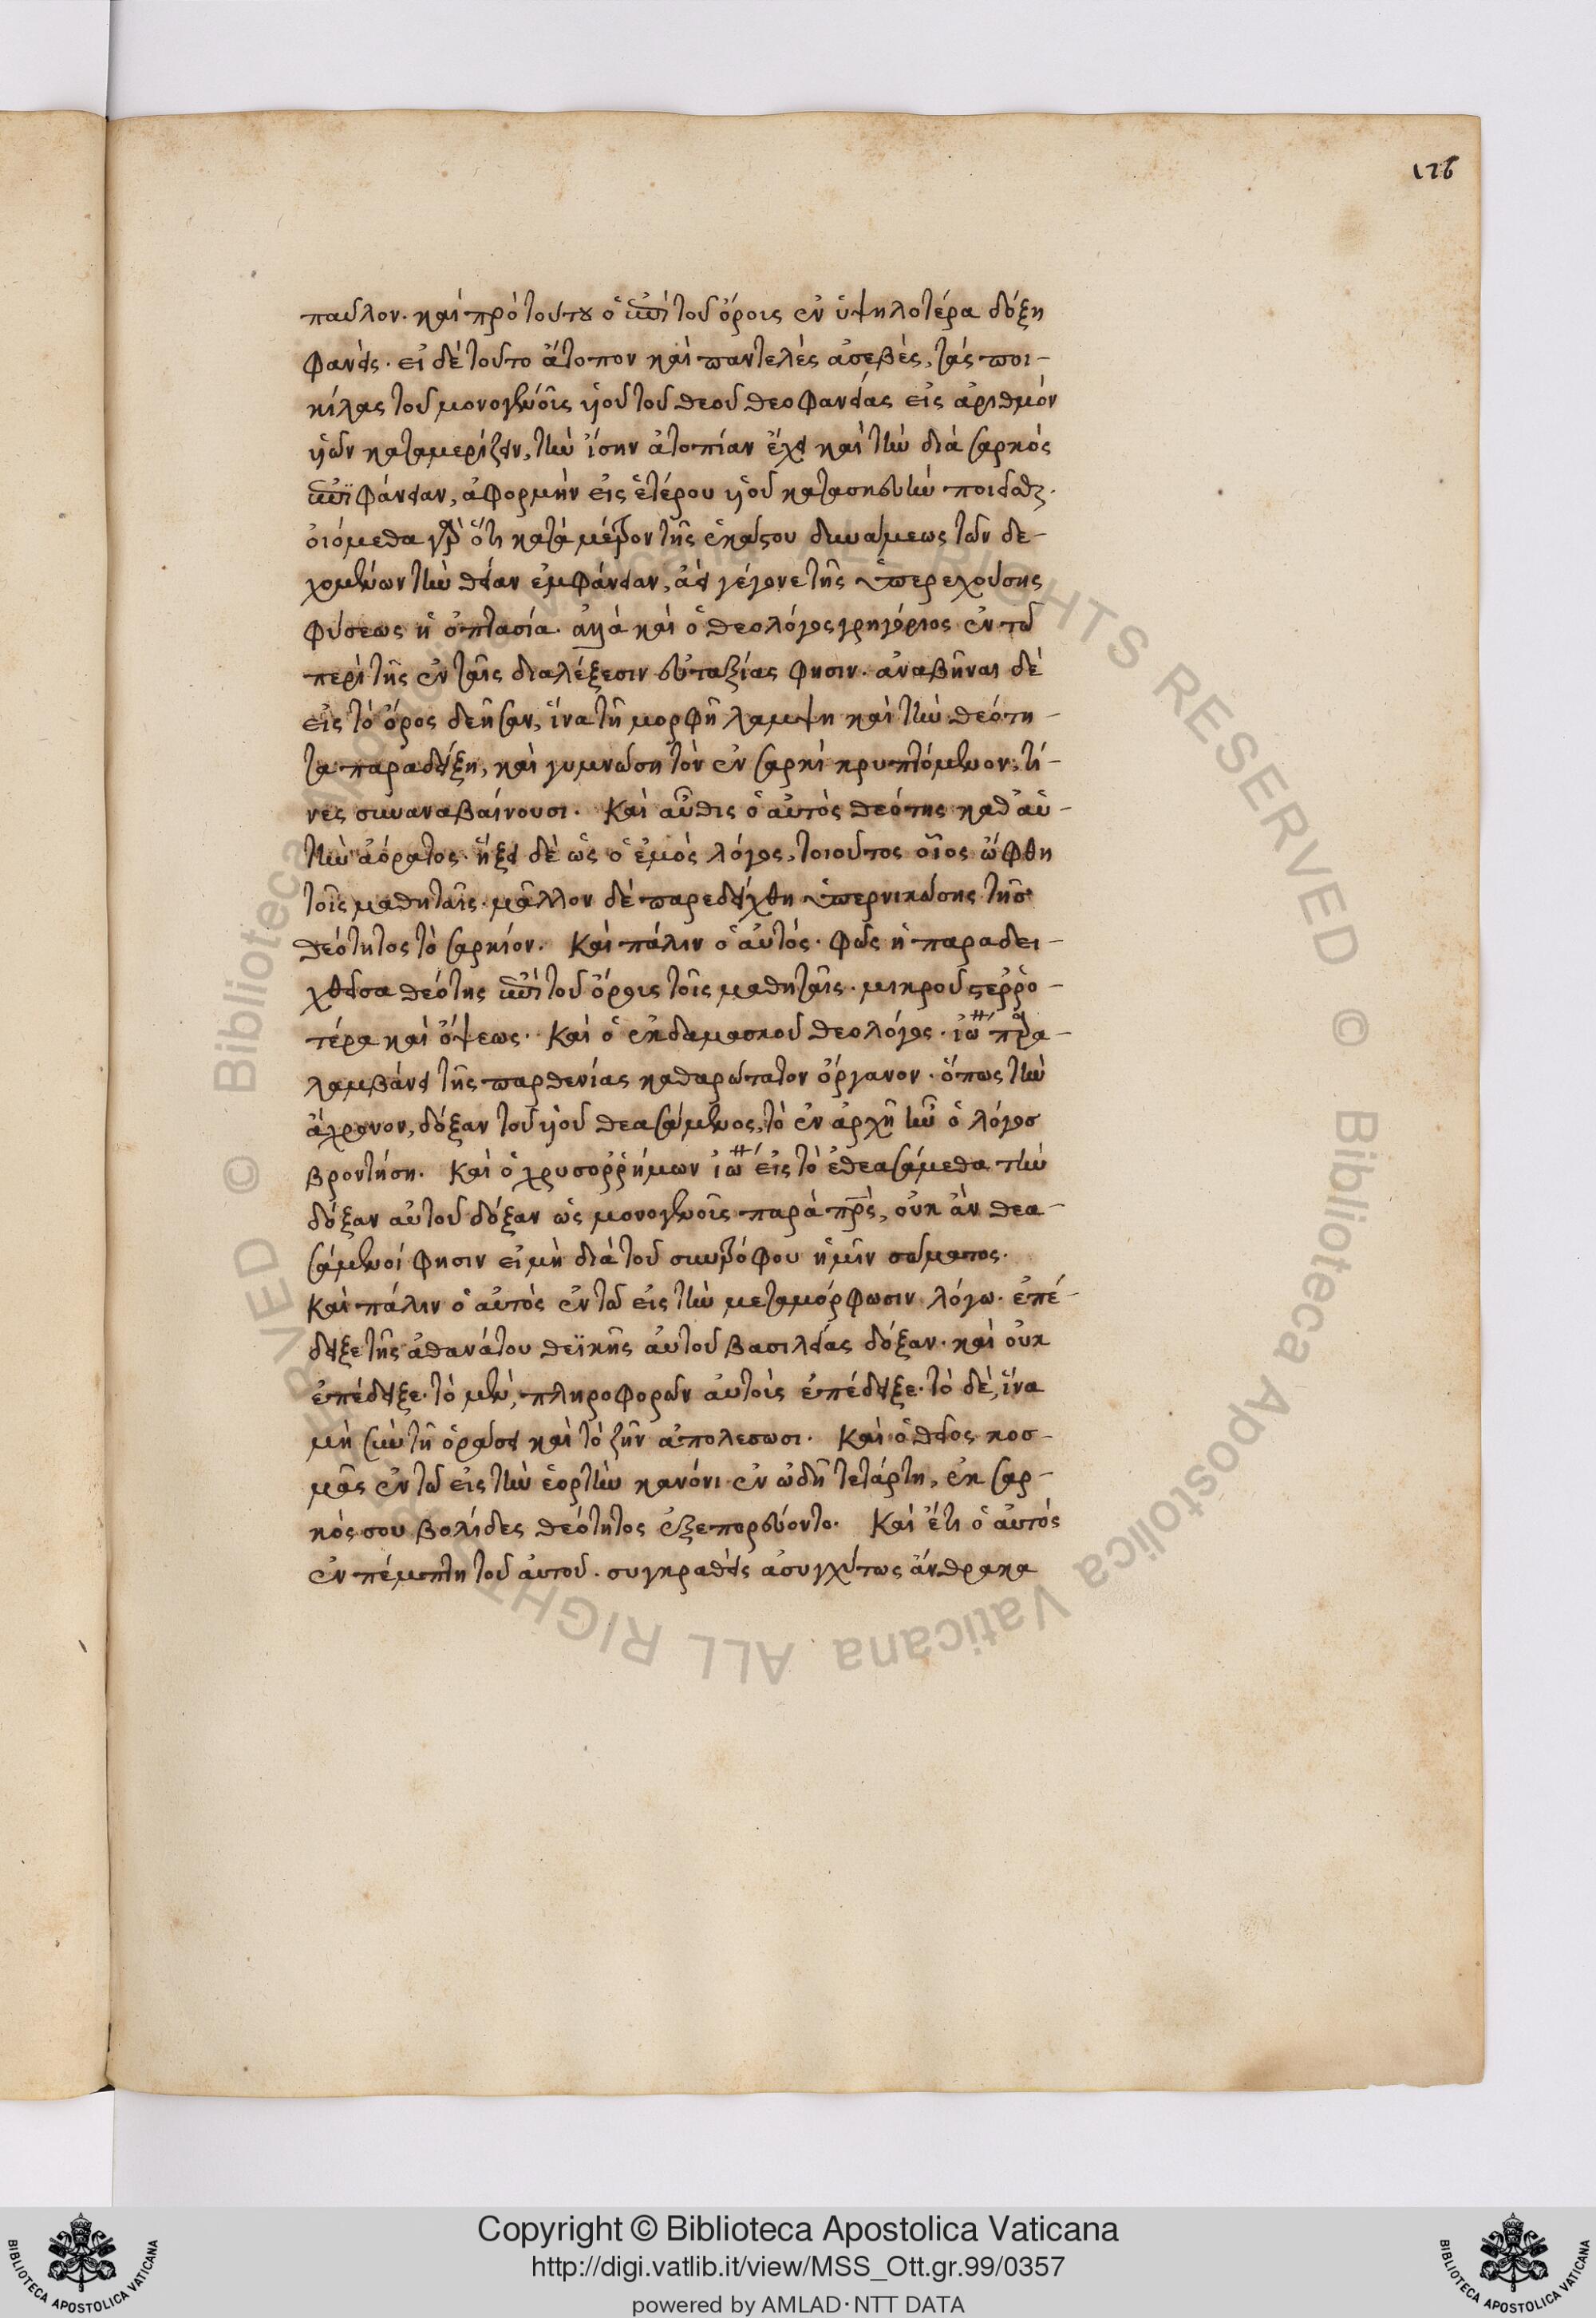 176
παῦλον. καὶ πρὸ τούτου ὁ ἐπὶ τοῦ ὄρους ἐν ὑψηλοτέρα δόξη
φανείς. εἰ δὲ τοῦτο ἄτοπον καὶ παντελὲς ἀσεβὲς, τὰς ποι-
κίλας τοῦ μονογενοῦς υἱοῦ τοῦ θεοῦ θεοφανείας εἰς ἀριθμὸν
υἱῶν καταμερίζειν, τὴν ἴσην ἀτοπίαν ἔχει καὶ τὴν διὰ σαρκὸς
ἐπιφάνειαν, ἀφορμὴν εἰς ἑτέρου υἱοῦ κατασκευὴν ποιεῖσθαι.
οἰόμεθα γὰρ ὅτι κατὰ μέτρον τῆς ἑκάστου δυνάμεως τῶν δε-
χομένων τὴν θείαν ἐμφάνειαν, ἀεὶ γέγονε τῆς ὑπερεχούσης
φύσεως ἡ ὀπτασία. ἀλλὰ καὶ ὁ θεολόγος γρηγόριος ἐν τῶ
περὶ τῆς ἐν ταῖς διαλέξεσιν εὐταξίας φησιν. ἀναβῆναι δὲ
εἰς τὸ ὄρος δεῆσαν, ἵνα τῆ μορφῆ λαμψη καὶ τὴν θεότη-
τα παραδείξη, καὶ γυμνώση τὸν ἐν σαρκὶ κρυπτόμενον, τί-
νες συναναβαίνουσι. Καὶ αὖθις ὁ αὐτὸς θεότης καθ' αὑ-
τὴν ἀόρατος. ἥξει δὲ ὡς ὁ ἐμὸς λόγος, τοιοῦτος οἷος ὤφθη
τοῖς μαθηταῖς. μᾶλλον δὲ παρεδείχθη ὑπερνικώσης τῆς
θεότητος τὸ σαρκίον. Καὶ πάλιν ὁ αὐτός. φῶς ἡ παραδει-
χθεῖσα θεότης ἐπὶ τοῦ ὄρους τοῖς μαθηταῖς. μικροῦ στερρο-
τέρα καὶ ὄψεως. Καὶ ὁ ἐκ δαμασκοῦ θεολόγος. ἰω παρα-
λαμβάνει τῆς παρθενίας καθαρώτατον ὄργανον. ὅπως τὴν
ἄχρονον, δόξαν τοῦ υἱοῦ θεασάμενος, τὸ ἐν ἀρχῆ ἦν ὁ λόγος
βροντήση. Καὶ ὁ χρυσορρήμων ἰω εἰς τὸ ἐθεασάμεθα τὴν
δόξαν αὐτοῦ δόξαν ὡς μονογενοῦς παρὰ πρς, οὐκ ἂν θεα-
σάμενοί φησιν εἰ μὴ διὰ τοῦ συντρόφου ἡμῖν σώματος.
Καὶ πάλιν ὁ αὐτὸς ἐν τῶ εἰς τὴν μεταμόρφωσιν λόγω. ἐπέ-
δειξε τῆς ἀθανάτου θεϊκῆς αὐτοῦ βασιλείας δόξαν. καὶ οὐκ
ἐπέδειξε. τὸ μὲν, πληροφορῶν αὐτοὺς ἐπέδειξε. τὸ δὲ, ἵνα
μὴ σὺν τῆ ὁράσει καὶ τὸ ζῆν ἀπολεσωσι. Καὶ ὁ θεῖος κοσ-
μᾶς ἐν τῶ εἰς τὴν ἑορτὴν κανόνι ἐν ὠδῆ τετάρτη, ἐκ σαρ-
κός σου βολίδες θεότητος ἐξεπορεύοντο. Καὶ ἔτι ὁ αὐτὸς
ἐν πέμπτη τοῦ αὐτοῦ. συγκραθεὶς ἀσυγχύτως ἄνθρακα
© Biblioteca Apostolica Vaticana ALL RIGHTS RESERVED © Biblioteca Apostolica Vaticana ALL RIGHTS RESERVED
Copyright © Biblioteca Apostolica Vaticana
http://digi.vatlib.it/view/MSS_Ott.gr.99/0357
powered by AMLAD·NTT DATA
BIBLIOTECA APOSTOLICA VATICANA
BIBLIOTECA APOSTOLICA VATICANA